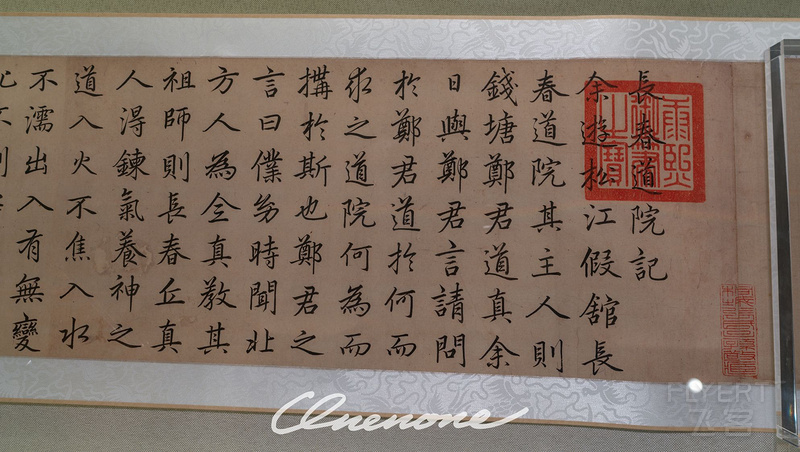 長春道院記
余遊松江假舘長
春道院其主人則
錢塘鄭君道真余
日與鄭君言請問
於鄭君道於何而
求之道院何為而
搆於斯也鄭君之
言曰僕㓜時聞北
方人為全真教其
祖師則長春丘真
人得鍊氣養神之
道入火不焦入水
不濡出入有無變
康熙
之寶
FLYERT
飞客